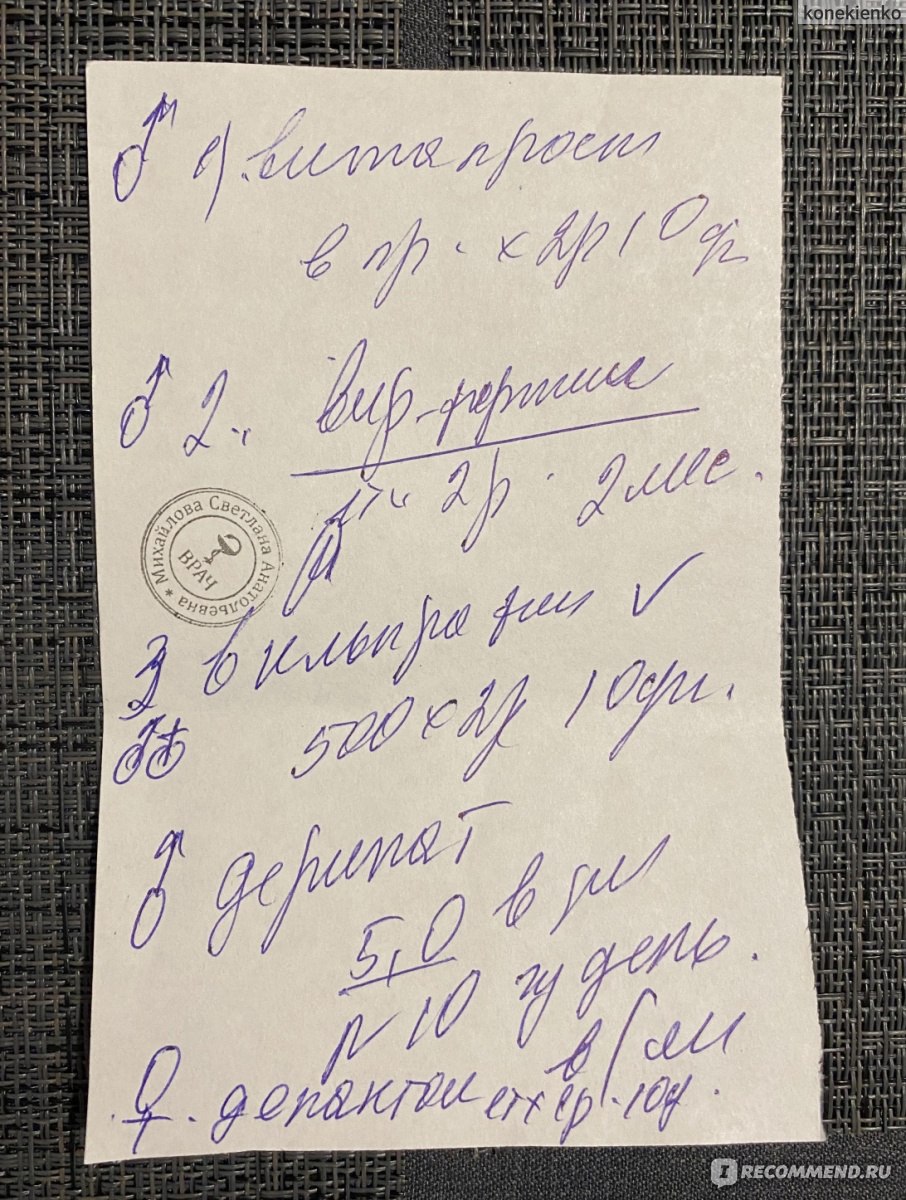 konekienko
♂ 1). витапрост
в пр. х 2р 10 дн
♂ 2.
2р. 2 мес.
Михайлова Светлана Анатольевна
ВРАЧ
3 вильпрафен ✓
♂♀ 500 х 2р 10 дн.
♂ деринат
5,0 в/м
N 10 день.
♀. депантол
в
10д.
IRECOMMEND.RU